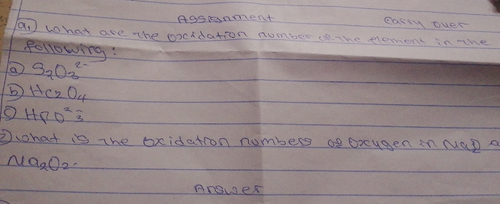 Assignment Carry over
Q1) What are the oxidation number of the element in the
following:
a) S2O3 2-
b) HC2O4
c) HPO 2- 3
2) What is the oxidation numbers of oxygen in
Na2O2.
Answer